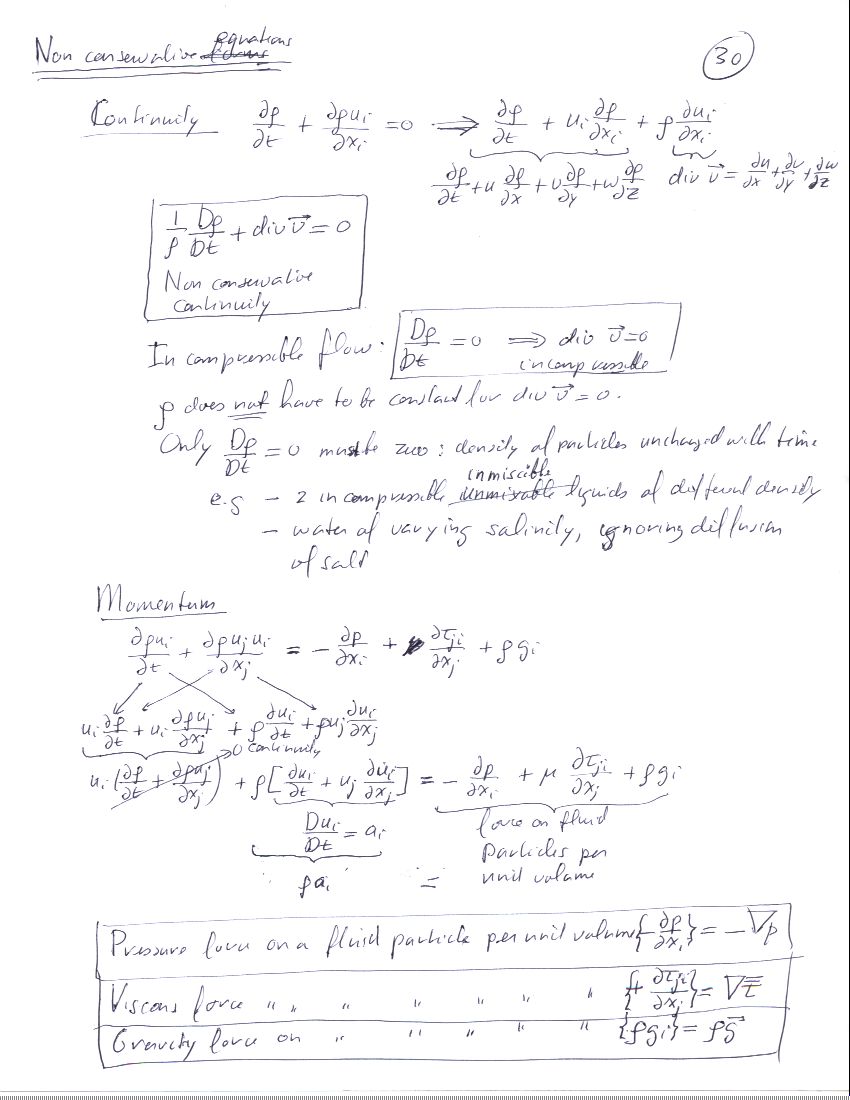 Non conservative equations
30
Continuity ∂ρ/∂t + ∂ρuᵢ/∂xᵢ = 0 ⟹ ∂ρ/∂t + uᵢ ∂ρ/∂xᵢ + ρ ∂uᵢ/∂xᵢ
∂ρ/∂t + u ∂ρ/∂x + v ∂ρ/∂y + w ∂ρ/∂z div v⃗ = ∂u/∂x + ∂v/∂y + ∂w/∂z
1/ρ Dρ/Dt + div v⃗ = 0
Non conservative
continuity
Incompressible flow: Dρ/Dt = 0 ⟹ div v⃗ = 0
incompressible
ρ does not have to be constant for div v⃗ = 0.
Only Dρ/Dt = 0 must be zero: density of particles unchanged with time
e.g – 2 incompressible inmiscible liquids of different density
– water of varying salinity, ignoring diffusion
of salt
Momentum
∂ρuᵢ/∂t + ∂ρuⱼuᵢ/∂xⱼ = – ∂p/∂xᵢ + ∂τⱼᵢ/∂xⱼ + ρgᵢ
uᵢ ∂ρ/∂t + uᵢ ∂ρuⱼ/∂xⱼ + ρ ∂uᵢ/∂t + ρuⱼ ∂uᵢ/∂xⱼ
0 continuity
uᵢ (∂ρ/∂t + ∂ρuⱼ/∂xⱼ) + ρ[∂uᵢ/∂t + uⱼ ∂uᵢ/∂xⱼ] = – ∂p/∂xᵢ + μ ∂τⱼᵢ/∂xⱼ + ρgᵢ
Duᵢ/Dt = aᵢ force on fluid
particles per
ρaᵢ = unit volume
Pressure force on a fluid particle per unit volume {–∂p/∂xᵢ} = –∇p
Viscous force " " " " " " " {+∂τⱼᵢ/∂xⱼ} = ∇τ̿
Gravity force on " " " " " {ρgᵢ} = ρg⃗